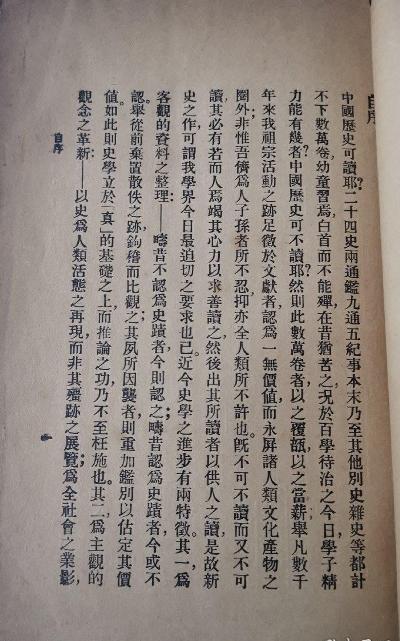 自序
中國歷史可讀耶?二十四史兩通鑑九通五紀事本末乃至其他別史雜史等都計
不下數萬卷幼童習焉白首而不能殫在昔猶苦之況於百學待治之今日學子精
力能有幾者?中國歷史可不讀耶?然則此數萬卷者以之覆瓿以之當薪舉凡數千
年來我祖宗活動之跡足徵於文獻者認爲一無價值而永屏諸人類文化產物之
圈外;非惟吾儕爲人子孫者所不忍抑亦全人類所不許也。旣不可不讀而又不可
讀其必有若而人焉竭其心力以求善讀之然後出其所讀者以供人之讀是故新
史之作可謂我學界今日最迫切之要求也已。近今史學之進步有兩特徵。其一爲
客觀的資料之整理:——疇昔不認爲史蹟者今則認之;疇昔認爲史蹟者今或不
認。舉從前棄置散佚之跡,鈎稽而比觀之;其夙所因襲者則重加鑑別以估定其價
值。如此則史學立於「眞」的基礎之上而推論之功乃不至枉施也。其二爲主觀的
觀念之革新:——以史爲人類活態之再現而非其殭跡之展覽;爲全社會之業影,
自序
一